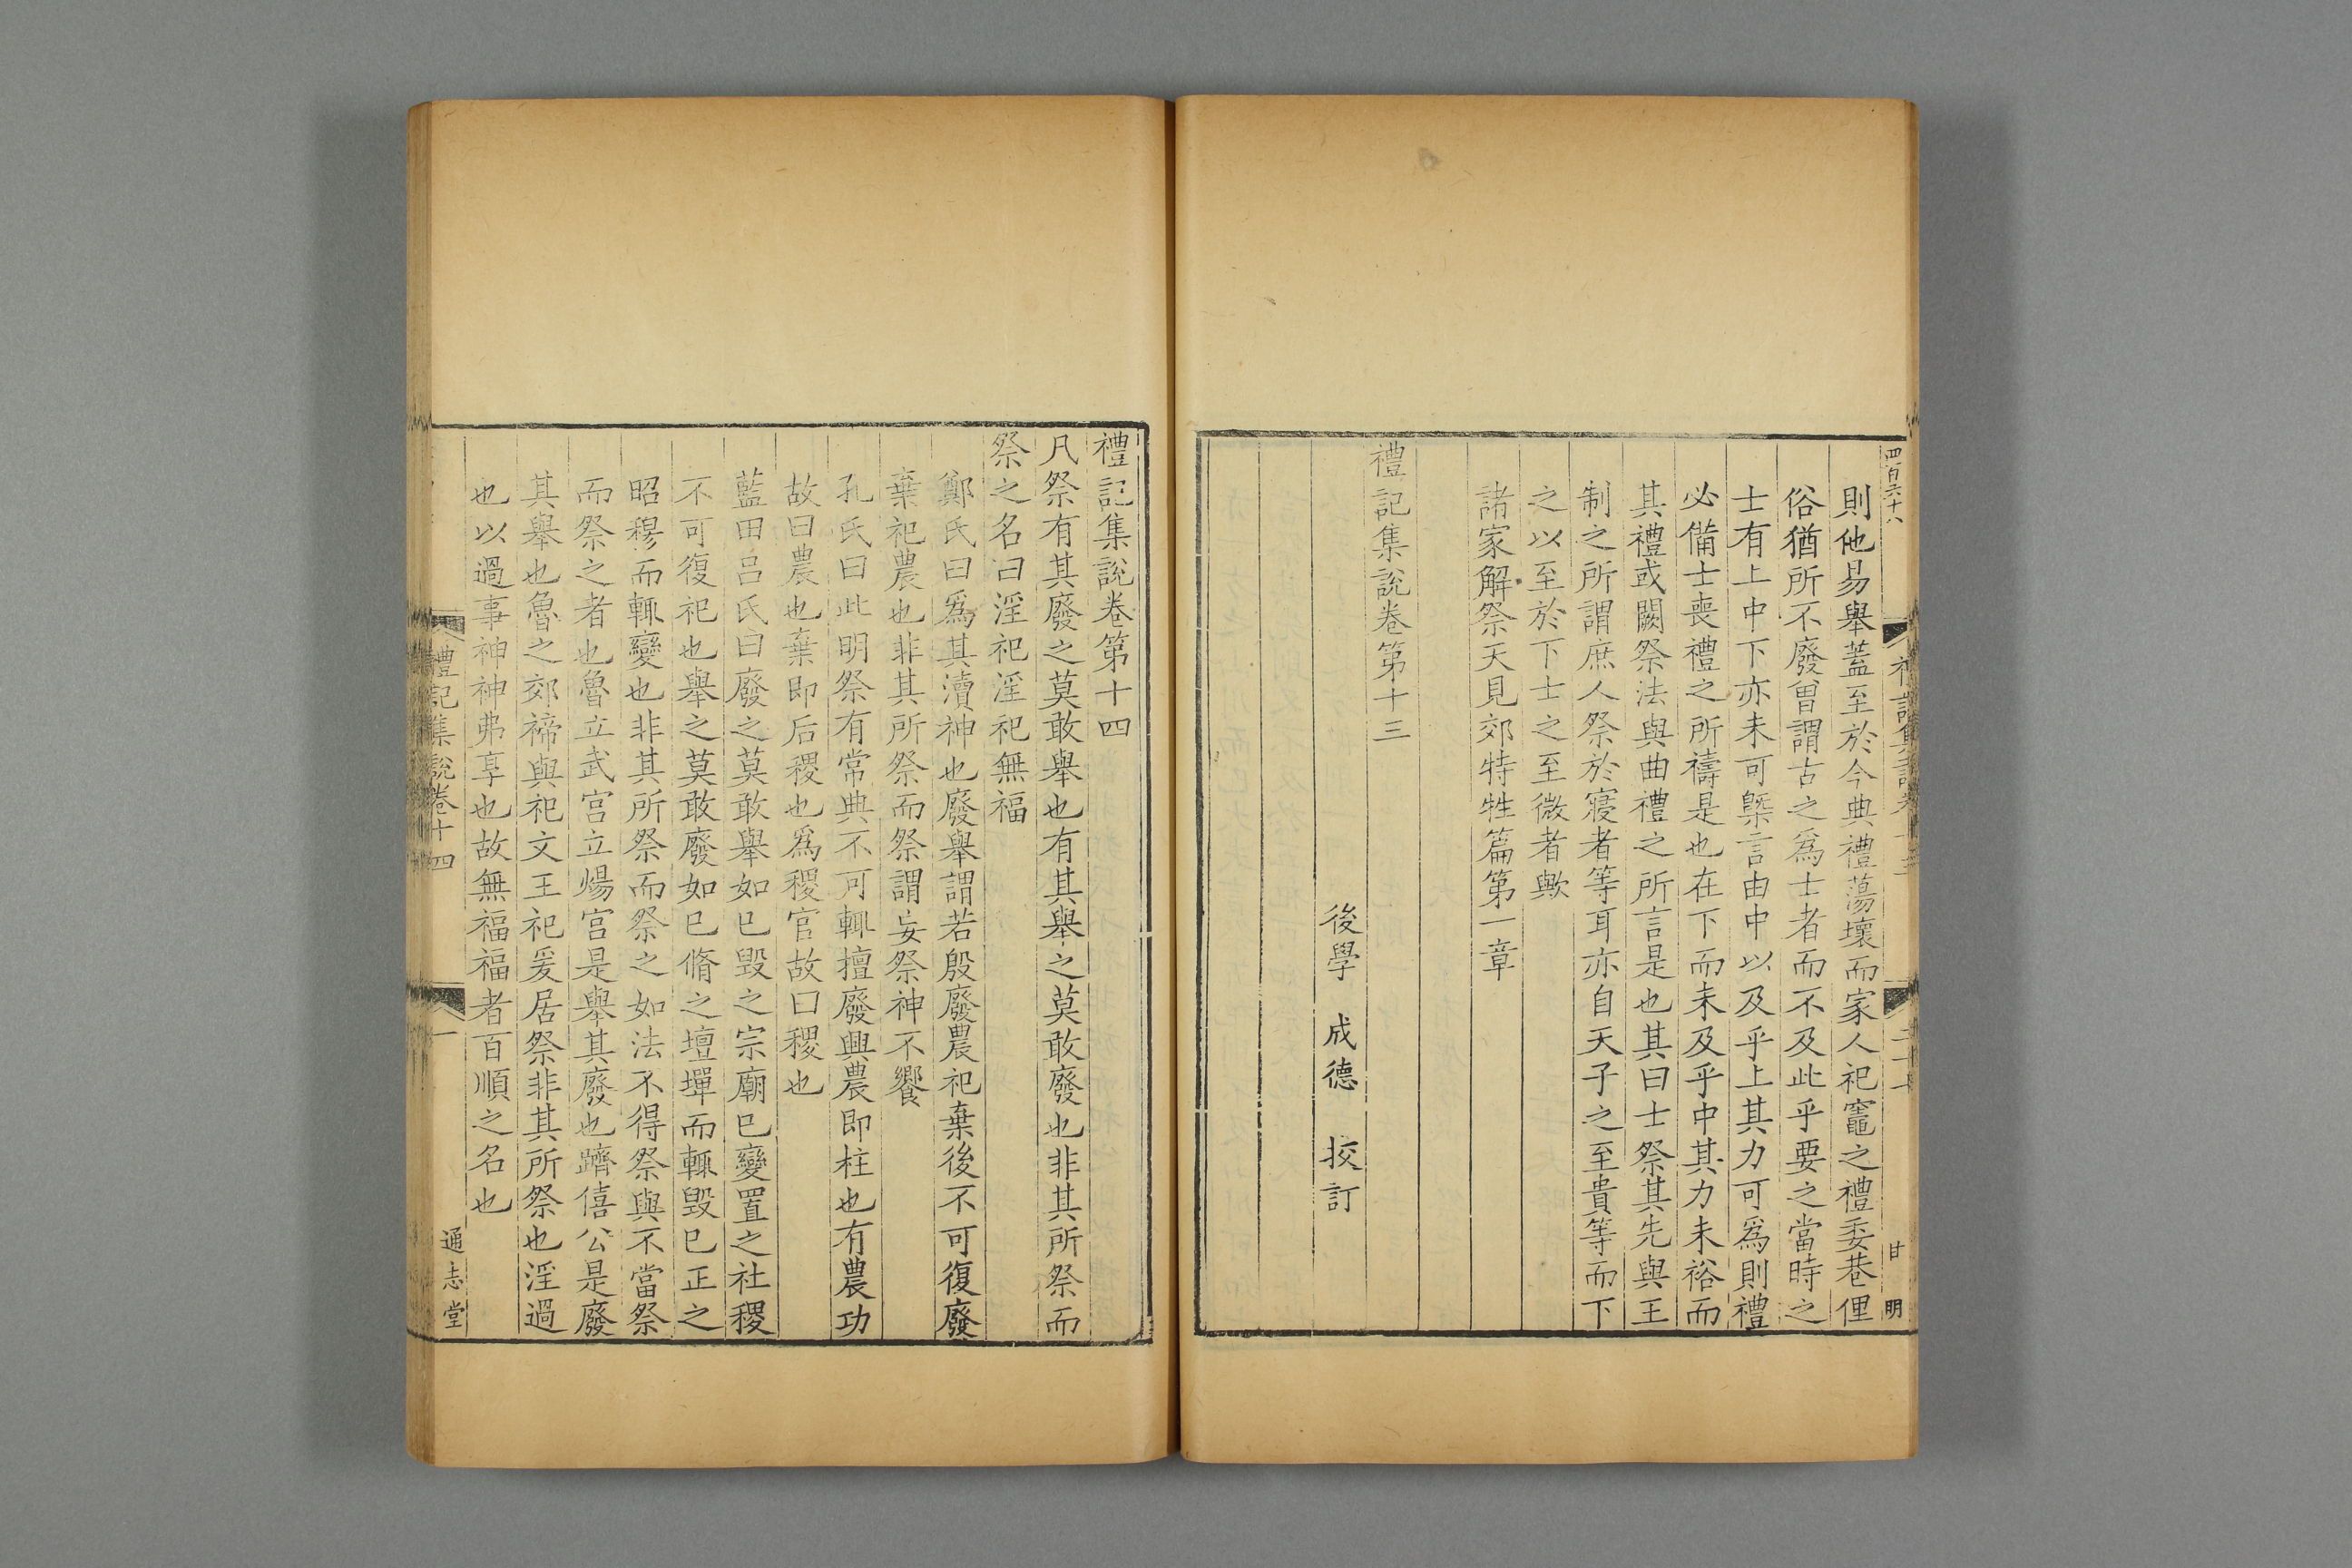 四百六十八
則他易舉蓋至於今典禮蕩壞而家人祀竈之禮委巷俚
俗猶所不廢曾謂古之爲士者而不及此乎要之當時之
士有上中下亦未可槩言由中以及乎上其力可爲則禮
必備士喪禮之所禱是也在下而未及乎中其力未裕而
其禮或闕祭法與曲禮之所言是也其曰士祭其先與王
制之所謂庶人祭於寢者等耳亦自天子之至貴等而下
之以至於下士之至微者歟
諸家解祭天見郊特牲篇第一章
禮記集說卷第十三
後學 成德 挍訂
甘 明
禮記集說卷第十四
凡祭有其廢之莫敢舉也有其舉之莫敢廢也非其所祭而
祭之名曰淫祀淫祀無福
鄭氏曰爲其瀆神也廢舉謂若殷廢農祀棄後不可復廢
棄祀農也非其所祭而祭謂妄祭神不饗
孔氏曰此明祭有常典不可輒擅廢興農即柱也有農功
故曰農也棄即后稷也爲稷官故曰稷也
藍田呂氏曰廢之莫敢舉如已毀之宗廟已變置之社稷
不可復祀也舉之莫敢廢如已脩之壇墠而輒毀已正之
昭穆而輒變也非其所祭而祭之如法不得祭與不當祭
而祭之者也魯立武宮立煬宮是舉其廢也躋僖公是廢
其舉也魯之郊禘與祀文王祀爰居祭非其所祭也淫過
也以過事神神弗享也故無福福者百順之名也
禮記集說卷十四
一
通志堂